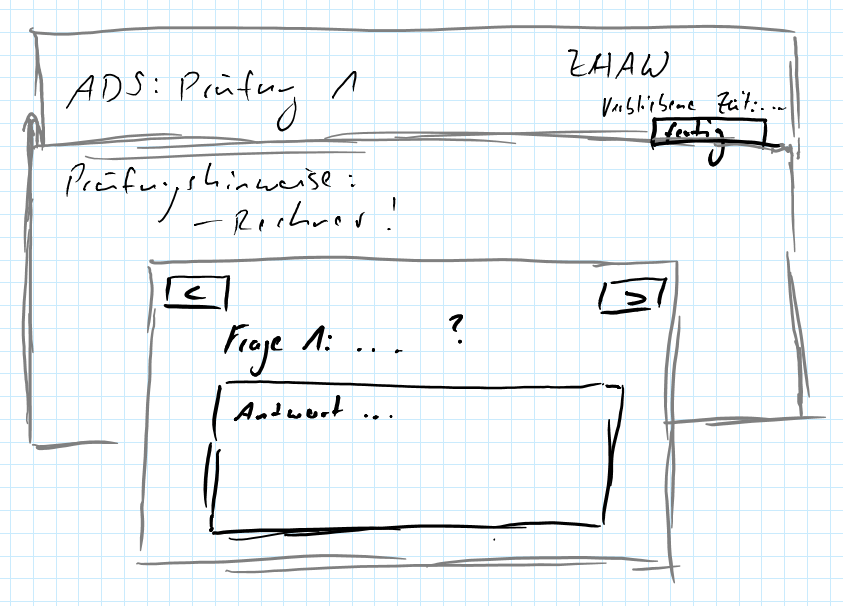 ADS: Prüfung 1
ZHAW
Verbliebene Zeit:...
fertig
Prüfungshinweise:
- Rechner!
<
>
Frage 1: ... ?
Antwort ...